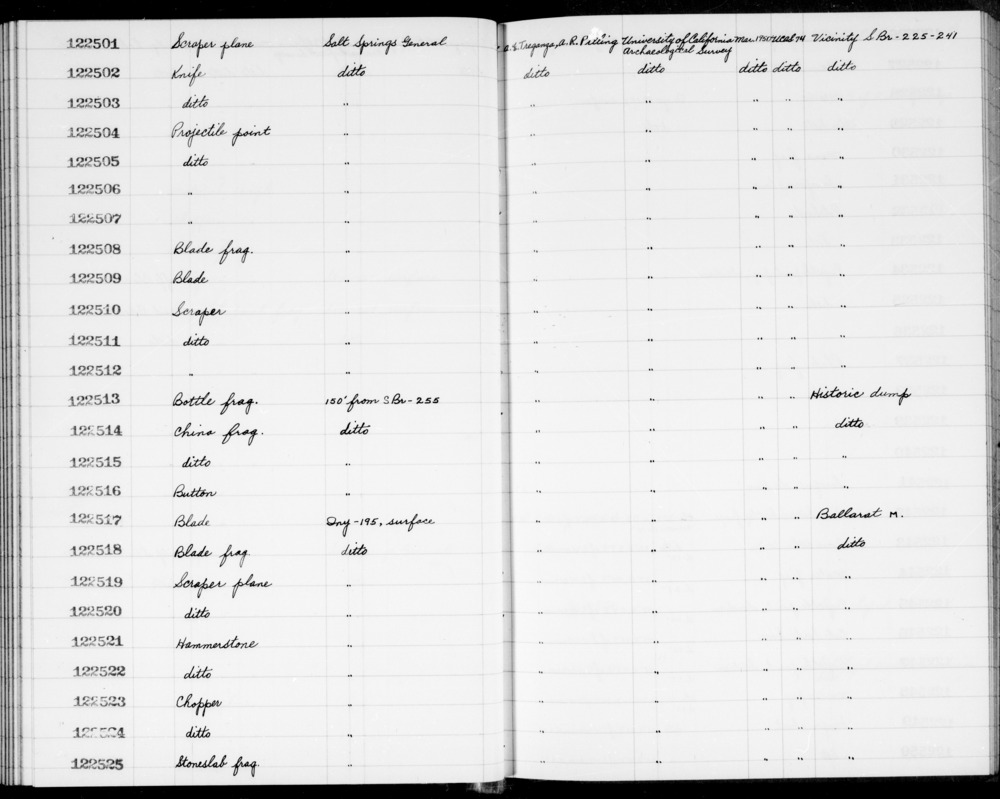 122501 Scraper plane Salt Springs General A.E. Treganza, A.R. Pilling University of California Archaeological Survey Mar. 1950 UCAS 74 Vicinity SBr-225-241
122502 Knife ditto ditto ditto ditto ditto ditto
122503 ditto " " " " " "
122504 Projectile point " " " " " "
122505 ditto " " " " " "
122506 " " " " " " "
122507 " " " " " " "
122508 Blade frag. " " " " " "
122509 Blade " " " " " "
122510 Scraper " " " " " "
122511 ditto " " " " " "
122512 " " " " " " "
122513 Bottle frag. 150' from SBr-255 " " " " Historic dump
122514 China frag. ditto " " " " ditto
122515 ditto " " " " " "
122516 Button " " " " " "
122517 Blade Iny-195, surface " " " " Ballarat M.
122518 Blade frag ditto " " " " ditto
122519 Scraper plane " " " " " "
122520 ditto " " " " " "
122521 Hammerstone " " " " " "
122522 ditto " " " " " "
122523 Chopper " " " " " "
122524 ditto " " " " " "
122525 Stoneslab frag. " " " " " "